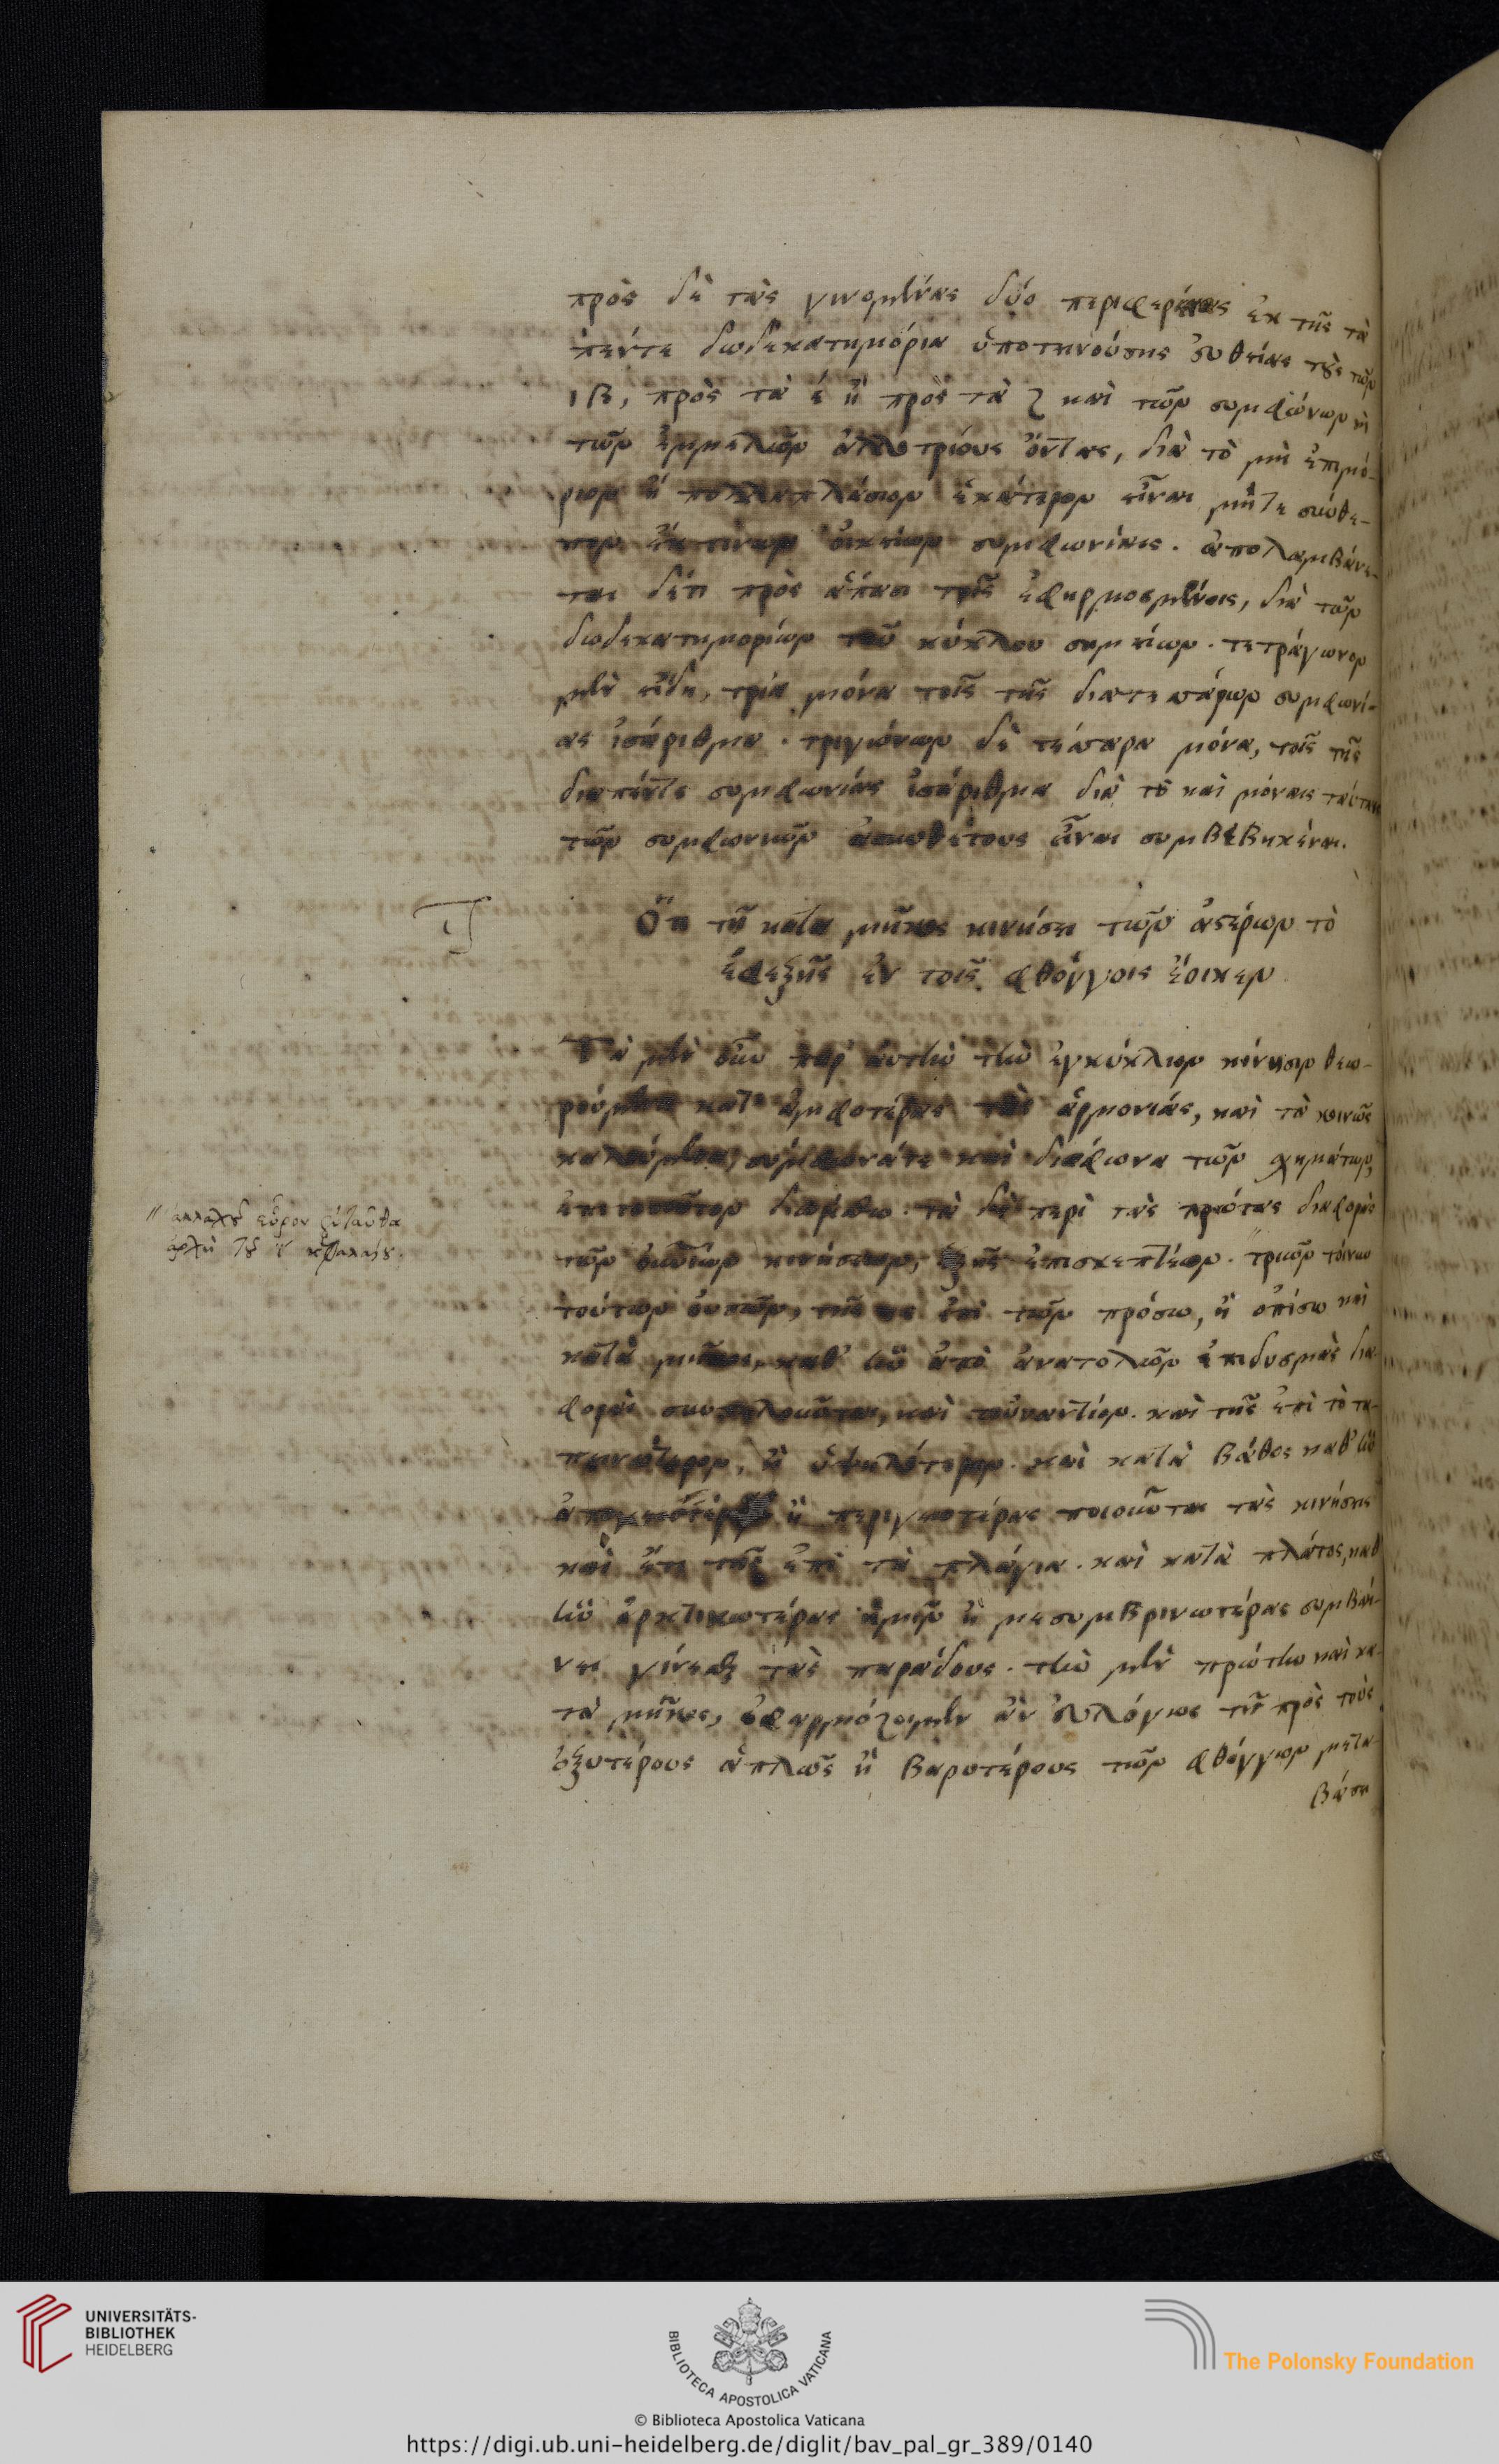 πρὸς δὲ τὰς γινομένας δύο περιφερείας ἐκ τῆς τὰ
πέντε δωδεκατημόρια ὑποτεινούσης εὐθείας τοὺς τῶν
ιβ, πρὸς τὰ έ ἢ πρὸς τὰ ζ καὶ τῶν συμφώνων κὶ
τῶν ἐμμελῶν ἀλλοτρίους ὄντας, διὰ τὸ μὴ ἐπιμό-
ριον ἢ πολλαπλάσιον ἑκάτερον εἶναι μήτε σύνθε-
τον ἔκ τινων οἰκείων συμφωνίαις. ἀπολαμβάνε-
ται δέτι πρὸς ἅπασι τοῖς ἐφηρμοσμένοις, διὰ τῶν
δωδεκατημορίων τοῦ κύκλου σημείων. τετράγωνον
μὲν εἴδη, τρία μόνα τοῖς τῆς διατεσσάρων συμφωνί-
ας ἰσάριθμα. τριγώνων δὲ τέσσαρα μόνα, τοῖς τῆς
διαπέντε συμφωνίας ἰσάριθμα διὰ τὸ καὶ μόναις ταύταις
τῶν συμφωνιῶν ἀσυνθέτους εἶναι συμβέβηκέναι.
Ὅτι τῇ κατὰ μῆκος κινήσει τῶν ἀστέρων τὸ
ἐφεξῆς ἐν τοῖς φθόγγοις ἔοικεν
Τὰ μὲν οὖν παρ' αὐτὴν τὴν ἐγκύκλιον κίνησιν θεω-
ρούμενα κατ' ἀμφοτέρας τὰς ἁρμονίας, καὶ τὰ κοινῶς
καλούμενα σύμφωνάτε καὶ διάφωνα τῶν σχημάτων,
ἐπιτοσοῦτον διωρίσθω. τὰ δὲ περὶ τὰς πρώτας διαφορὰς
τῶν οὐρανίων κινήσεων, ἑξῆς ἐπισκεπτέον. "τριῶν τοίνυν
" ἀλλαχοῦ εὗρον ἐνταῦθα
ἀρχὴ τοῦ ι κεφαλαίου.
τούτων οὐσῶν, τῆς τε ἐπὶ τῶν πρόσω, ἢ ὀπίσω καὶ
κατὰ μῆκος, καθ' ἣν ἀπὸ ἀνατολῶν ἐπιδυσμὰς δια-
φοραὶ συναπλοῦνται, καὶ τοὐναντίον. καὶ τῆς ἐπὶ τὸ τα-
πεινότερον, ἢ ὑψηλότερον. καὶ κατὰ βάθος καθ' ἣν
ἀπογειοτέρας ἢ περιγειοτέρας ποιοῦνται τὰς κινήσεις
καὶ ἔτι τῆς ἐπὶ τὰ πλάγια. καὶ κατὰ πλάτος, καθ'
ἣν ἀρκτικωτέρας ἡμῖν ἢ μεσυμβρινωτέρας συμβαί-
νει γίνεσθαι τὰς παρόδους. τὴν μὲν πρώτην καὶ κα-
τὰ μῆκος, ἐφαρμόζομεν ἂν εὐλόγως τῇ πρὸς τοὺς
ὀξυτέρους ἁπλῶς ἢ βαρυτέρους τῶν φθόγγων μετα-
βάσει
UNIVERSITÄTS-
BIBLIOTHEK
HEIDELBERG
BIBLIOTECA APOSTOLICA VATICANA
The Polonsky Foundation
© Biblioteca Apostolica Vaticana
https://digi.ub.uni-heidelberg.de/diglit/bav_pal_gr_389/0140